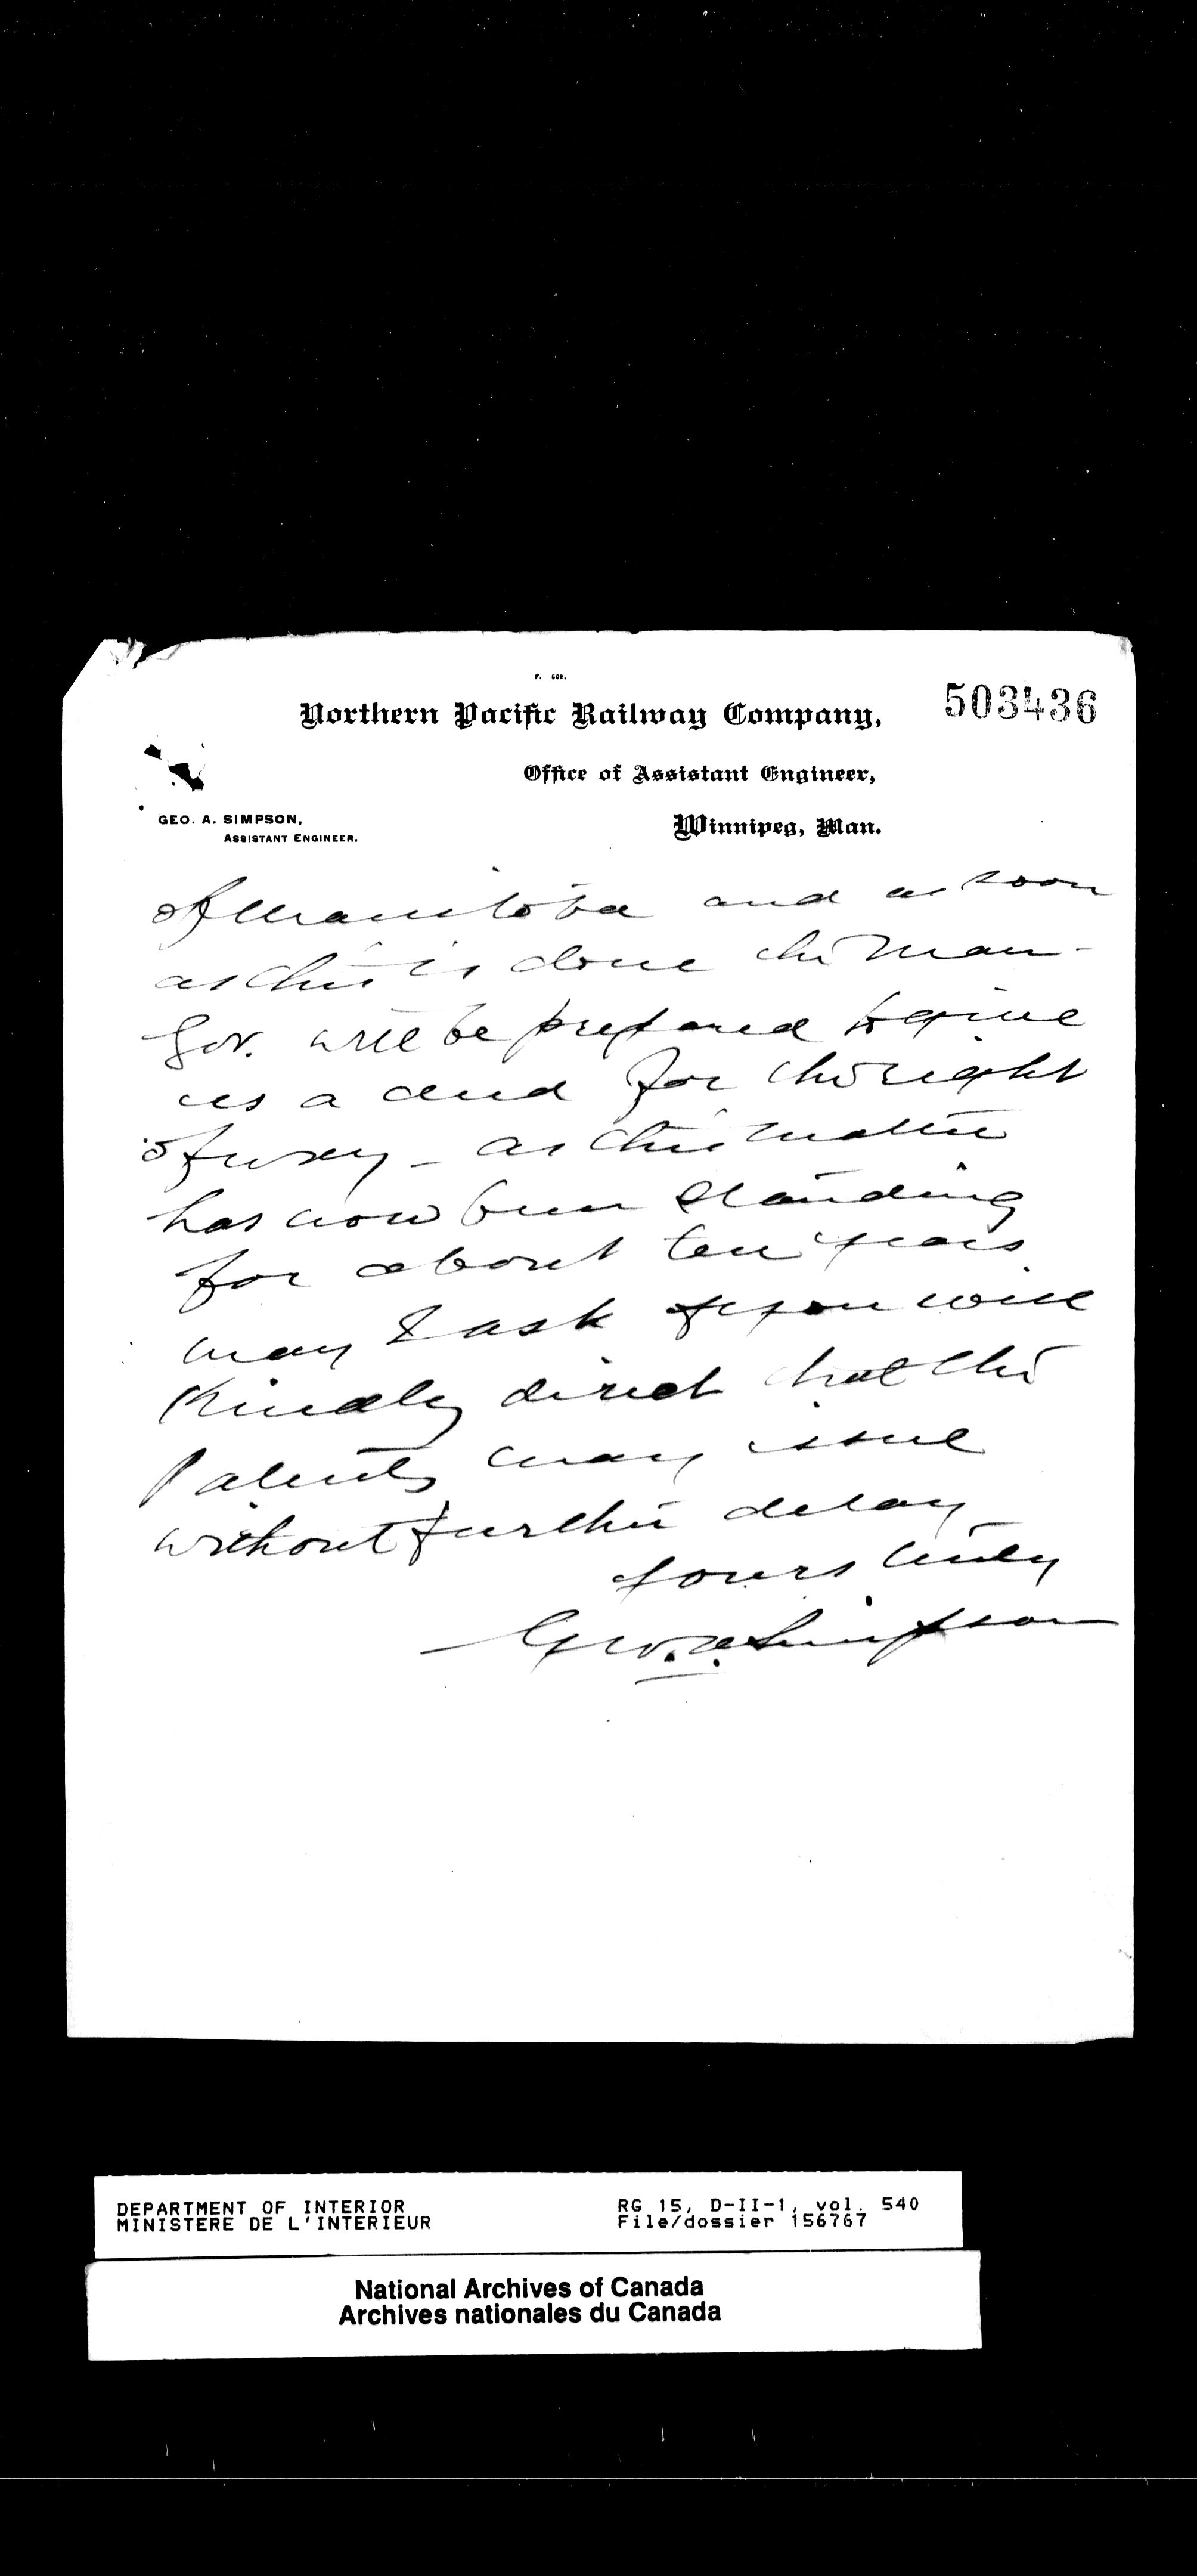 F. 602.
Northern Pacific Railway Company,
503436
Office of Assistant Engineer,
GEO. A. SIMPSON,
ASSISTANT ENGINEER.
Winnipeg, Man.
of Manitoba and as soon
as this is done the Man-
Gov. will be prepared to give
us a deed for the right
of way - as this matter
has now been standing
for about ten years.
may I ask if you will
kindly direct that the
Patents may issue
without further delay
Yours truly
Geo. A. Simpson
DEPARTMENT OF INTERIOR
MINISTERE DE L'INTERIEUR
RG 15, D-II-1, vol. 540
File/dossier 156767
National Archives of Canada
Archives nationales du Canada